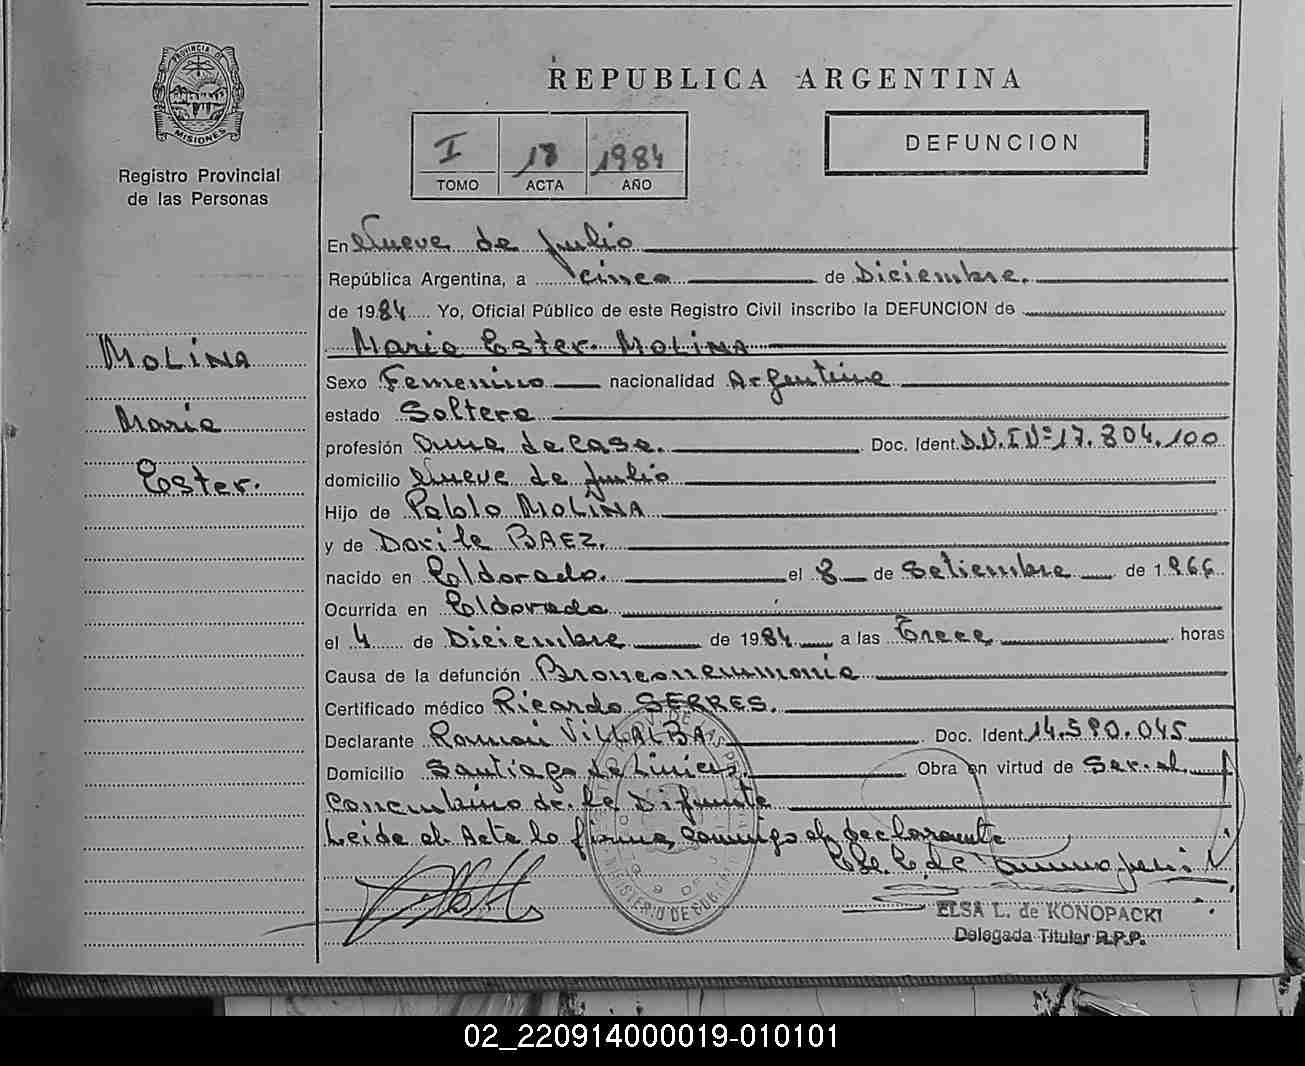 PROVINCIA DE
MISIONES
Registro Provincial
de las Personas
MOLINA
Maria
Ester.
REPUBLICA ARGENTINA
I 18 1984
TOMO ACTA AÑO
DEFUNCION
En Nueve de Julio
República Argentina, a cinco de Diciembre.
de 1984 Yo, Oficial Público de este Registro Civil inscribo la DEFUNCION de
Maria Ester. MOLINA
Sexo Femenino nacionalidad Argentina
estado Soltera
profesión ama de casa. Doc. Ident. D.N.I Nº 17.804.100
domicilio Nueve de Julio
Hijo de Pablo MOLINA
y de Dorila BAEZ.
nacido en Eldorado. el 8 de Setiembre de 1966
Ocurrida en Eldorado
el 4 de Diciembre de 1984 a las Trece horas
Causa de la defunción Bronconeumonia
Certificado médico Ricardo SERRES.
Declarante Ramón VILLALBA Doc. Ident. 14.590.045
Domicilio Santiago de Liniers. Obra en virtud de Ser. el
Concubino de. la Difunta
Leida el Acta la firma, conmigo el declarante
ELSA L. de KONOPACKI
Delegada Titular R.P.P.
MINISTERIO DE GOBIERNO
02_220914000019-010101